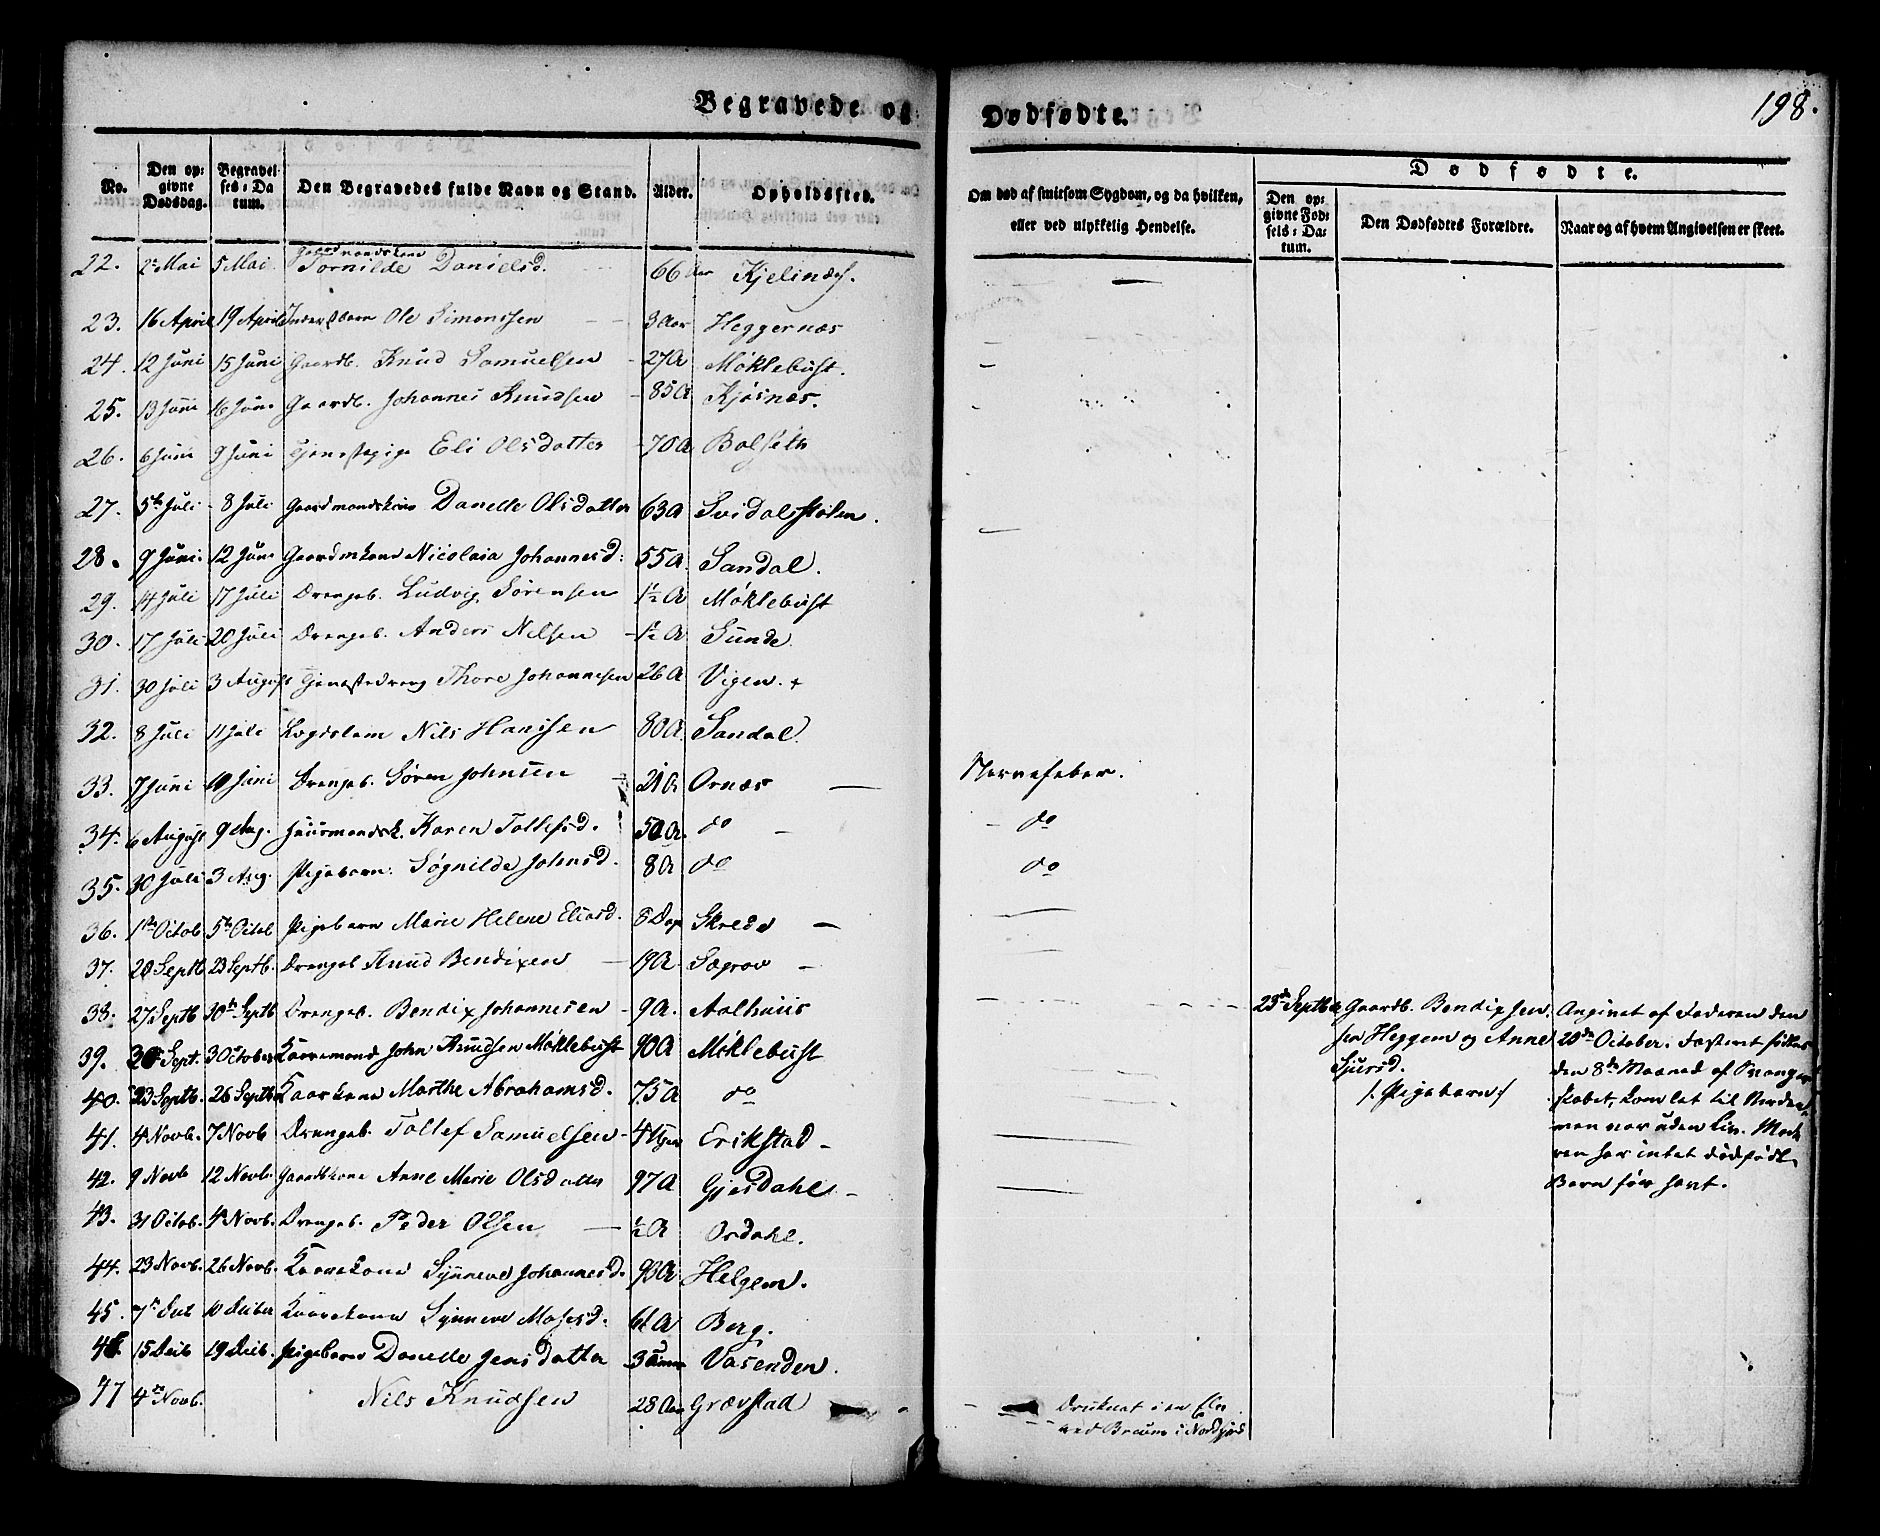 Begravede og Dødfødte.
198.
No.
Den opgivne Dødsdag.
Begravelses-Datum.
Den Begravedes fulde Navn og Stand.
Alder.
Opholdssted.
Om død af smitsom Sygdom, og da hvilken, eller ved ulykkelig Hendelse.
Dødfødte.
Den opgivne Fødsels-Datum.
Den Dødfødtes Forældre.
Naar og af hvem Angivelsen er skeet.
22. 2 Mai 5 Mai Gaardmandskone Tornilde Danielsd. 66 Aar Kjelinæs.
23. 16 April 19 April Ole Simonssen 3 Aar Heggernæs
24. 12 Juni 15 Juni Gaardb. Knud Samuelsen 27 A Møklebust.
25. 13 Juni 16 Juni Gaardb. Johannes Knudsen 85 A Kjøsnæs.
26. 6 Juni 9 Juni Tjenestepige Eli Olsdatter 70 A Bolseth
27. 5te Juli 8 Juli Gaardmandskone Danelle Olsdatter 63 A Svidalsstølen.
28. 9 Juni 12 Juni Gaardmkone Nicolaia Johannesd: 55 A. Sandal.
29. 14 Juli 17 Juli Drengeb. Ludvig Sørensen 1½ A Møklebust
30. 17 Juli 20 Juli Drengeb. Anders Nilsen 1½ A Sunde
31. 30 Juli 3 August Tjenestedreng Thore Johannesen 26 A Vigen. +
32. 8 Juli 11 Juli Lægdslem Nils Hanssen 80 A. Sandal.
33. 7 Juni 10 Juni Drengeb. Søren Johnsen 21 A Ornæs — Nervefeber.
34. 6 August 9 Aug. Huusmandsk. Karen Tollefsd. 50 A. do — do
35. 30 Juli 3 Aug. Pigebarn Søgnilde Johnsd. 8 A do do
36. 1te Octob 5te Octob Pigebarn Marie Helene Eliasd. 8 Dag Skrede —
37. 20 Septb 23 Septb. Drengeb Knud Bendixen 19 A Sægrov —
38. 27 Septb 30te Septb Drengeb. Bendix Johannesen 9 A. Aalhuus
39. Sept. 3 October Kaaremand John Knudsen Møklebust 90 A Møklebust
40. 23 Septb. 26 Septb Kaarkone Marthe Abrahamsd. 75 A do
41. 4 Novb. 7 Novb Drengeb. Tollef Samuelsen 4 Erikstad —
42. 9 Novb 12 Novb. Gaardkone Anne Marie Olsdatter 97 A Gjesdahl —
43. 31 Octob. 4 Novb. Drengeb. Peder Olsen — ½ A Ordahl.
44. 23 Novb. 26 Novb. Kaarekone Synneve Johannesd. 93 A Helgem.
45. 7 Dec 10 Kaarekone Synneve Mosesd. 61 A Berg.
46 15 Decb 19 Decb. Pigebarn Danelle Jensdatter 3 Vasenden.
47 4 Novb. Nils Knudsen 28 Aar Grævstad
Druknet i en Elv
ved i Nordfjord
23de Septbr Gaardb. Bendix Jen
sen Heggem og Anne
Sjursd.
/: Pigebarn :/
Angivet af Faderen den
20de October. Fosteret fødtes
den 8de Maaned af Svanger
skabet, kom let til Verden
men var uden Liv. Mode
ren har intet dødfødt
Barn før havt.